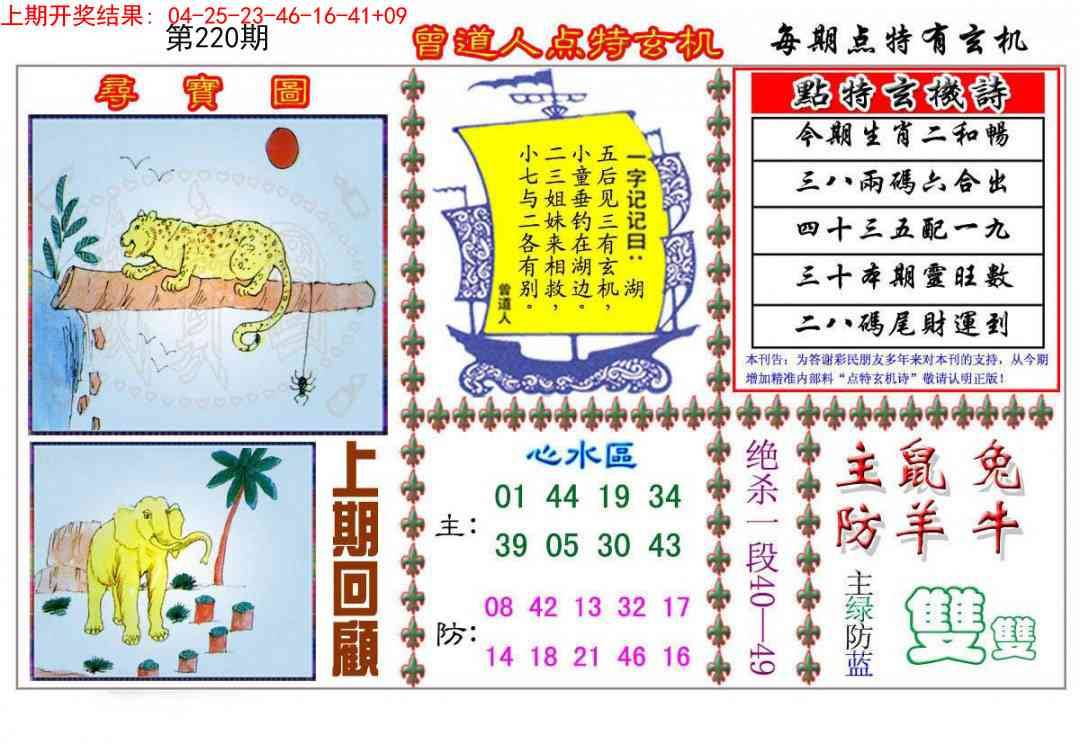 上期开奖结果：04-25-23-46-16-41+09
第220期
曾道人点特玄机
每期点特有玄机
尋寶圖
一字记记曰：湖
五后见三有玄机，
小童垂钓在湖边。
二三姐妹来相救，
小七与二各有别。
曾道人
點特玄機詩
今期生肖二和暢
三八兩碼六合出
四十三五配一九
三十本期靈旺數
二八碼尾財運到
本刊告：为答谢彩民朋友多年来对本刊的支持，从今期
增加精准内部料“点特玄机诗”敬请认明正版！
上期回顧
心水區
主：
01 44 19 34
39 05 30 43
防：
08 42 13 32 17
14 18 21 46 16
绝杀一段40—49
主鼠兔
防羊牛
主绿防蓝
雙雙